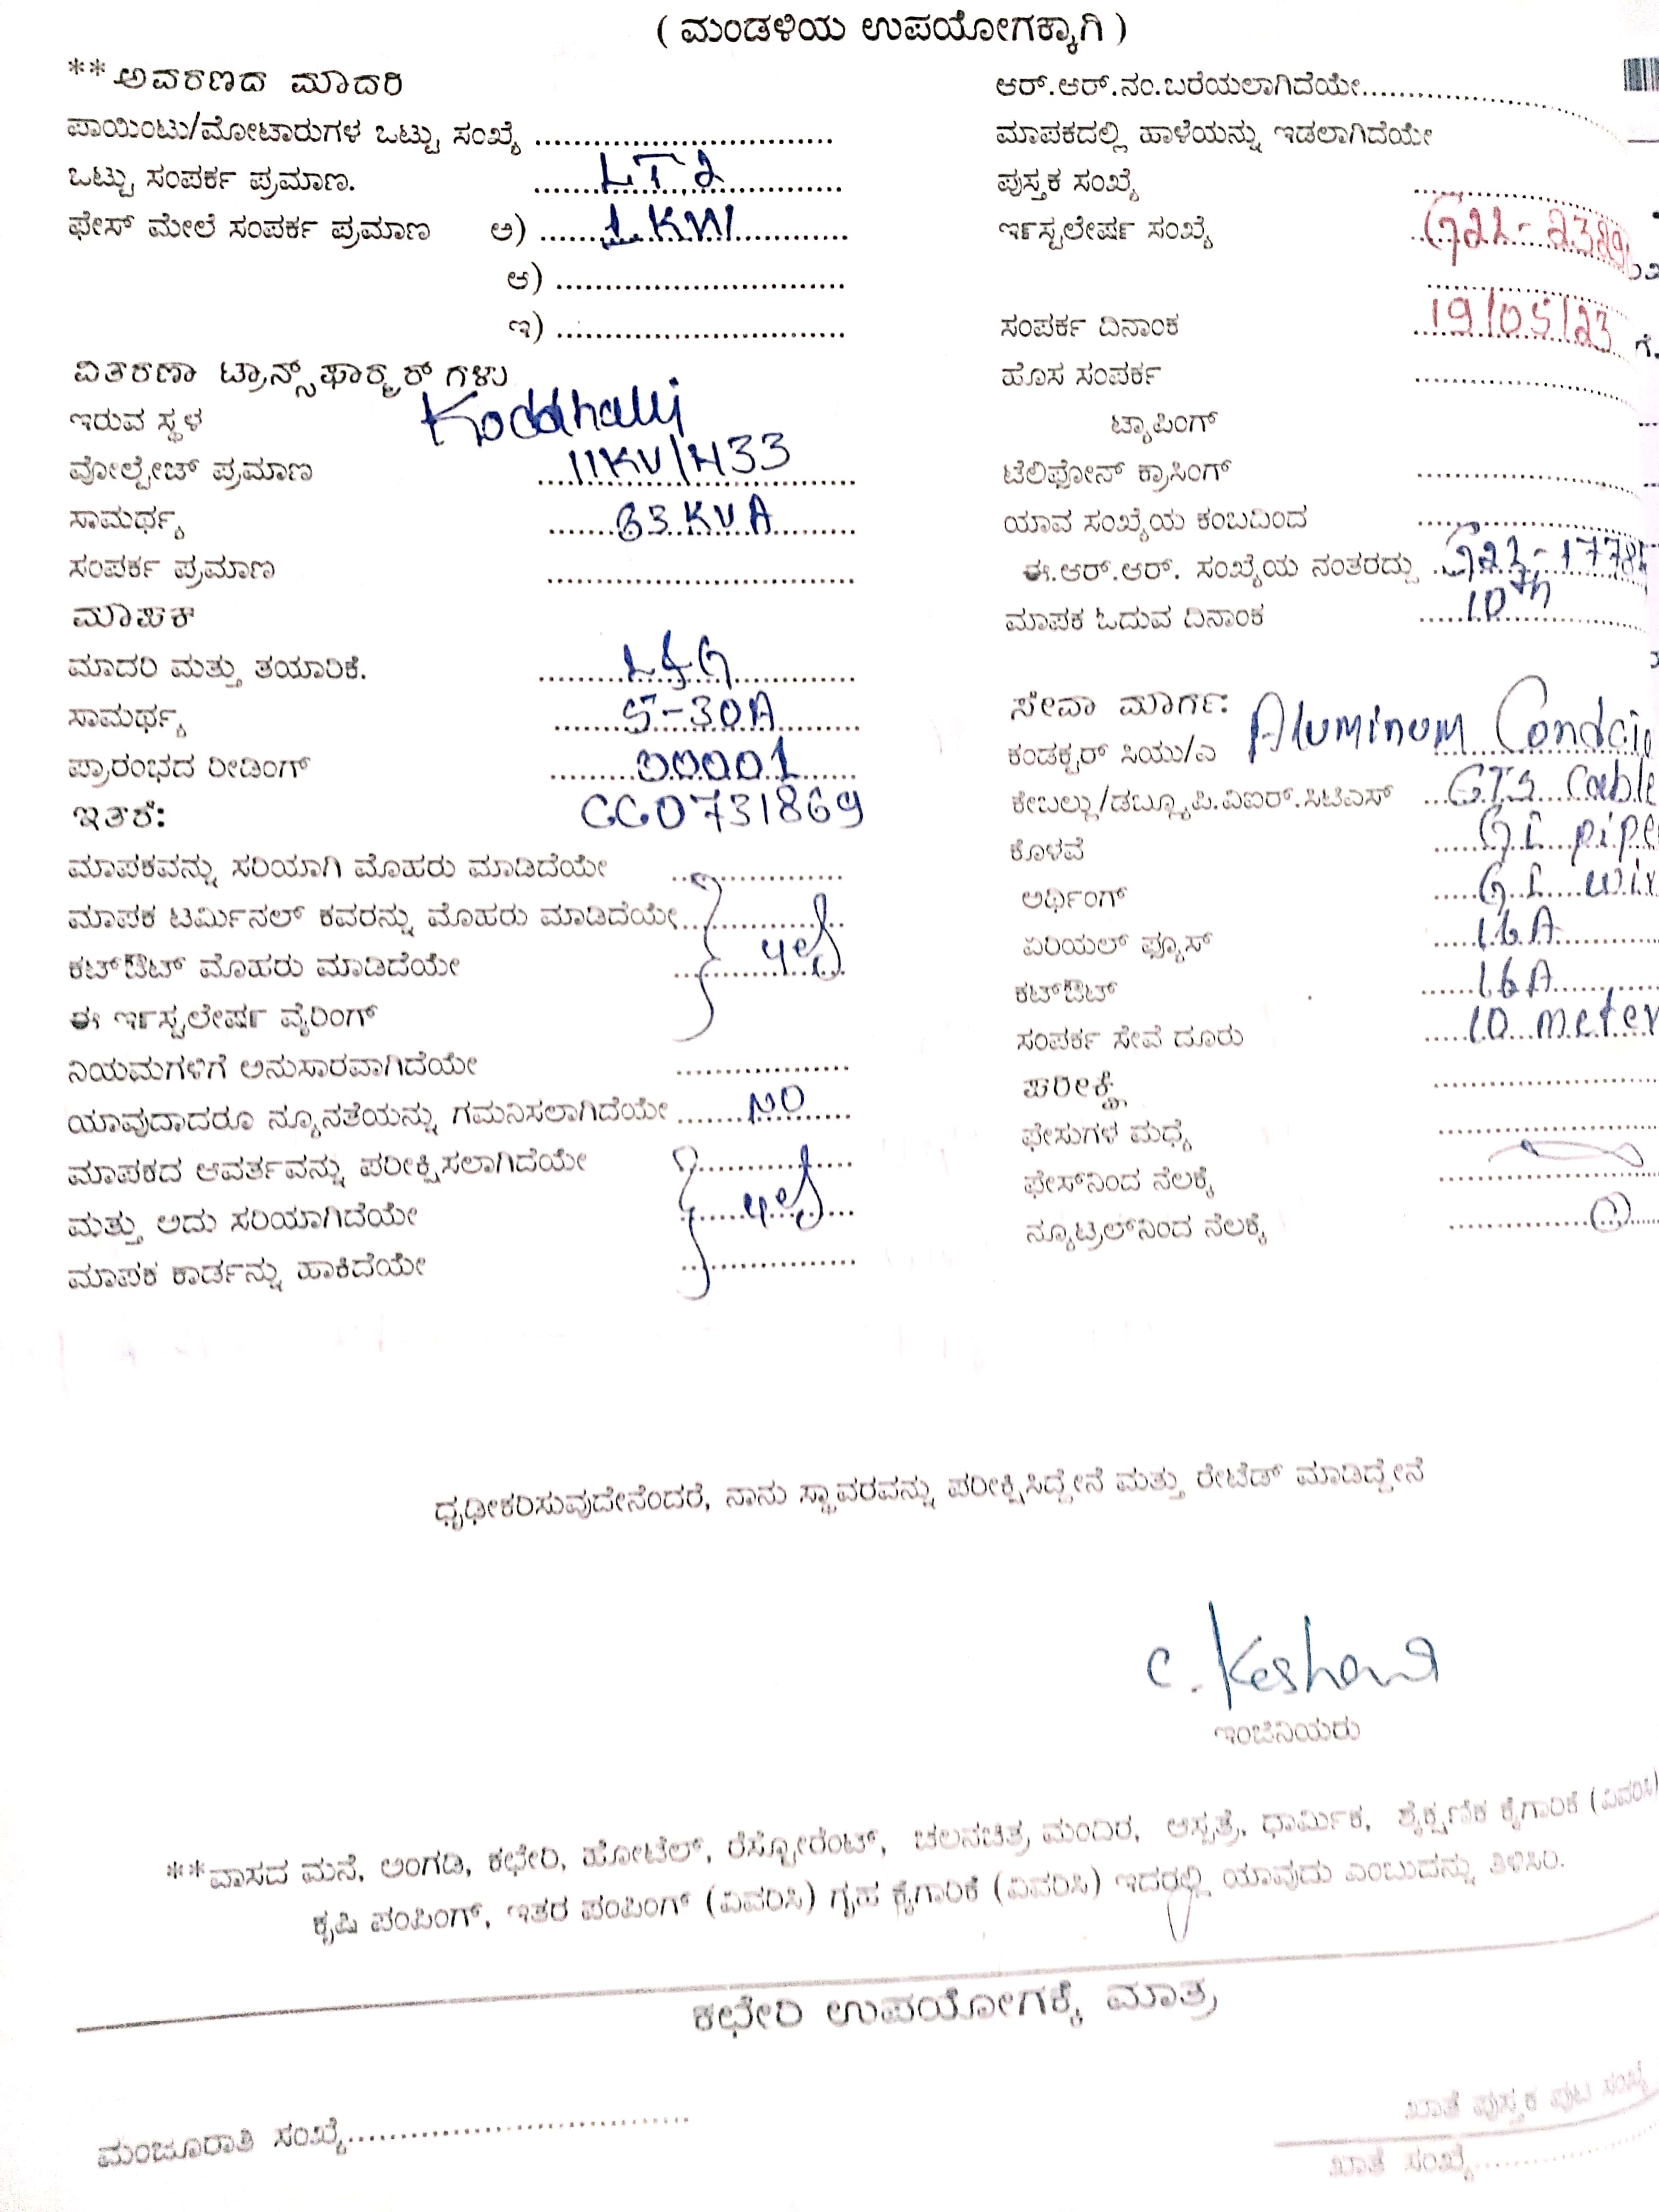 ( ಮಂಡಳಿಯ ಉಪಯೋಗಕ್ಕಾಗಿ )
**ಅವರಣದ ಮಾದರಿ
ಪಾಯಿಂಟು/ಮೋಟಾರುಗಳ ಒಟ್ಟು ಸಂಖ್ಯೆ ..............................
ಒಟ್ಟು ಸಂಪರ್ಕ ಪ್ರಮಾಣ. LT2
ಫೇಸ್ ಮೇಲೆ ಸಂಪರ್ಕ ಪ್ರಮಾಣ ಅ) 1 KW
ಆ) ..............................
ಇ) ..............................
ವಿತರಣಾ ಟ್ರಾನ್ಸ್‌ಫಾರ್ಮರ್ ಗಳು
ಇರುವ ಸ್ಥಳ Koddhalli
ವೋಲ್ಟೇಜ್ ಪ್ರಮಾಣ 11KV/433
ಸಾಮರ್ಥ್ಯ 63 KVA
ಸಂಪರ್ಕ ಪ್ರಮಾಣ ..............................
ಮಾಪಕ
ಮಾದರಿ ಮತ್ತು ತಯಾರಿಕೆ. L&G
ಸಾಮರ್ಥ್ಯ 5-30A
ಪ್ರಾರಂಭದ ರೀಡಿಂಗ್ 00001
ಇತರೆ: CC0731869
ಮಾಪಕವನ್ನು ಸರಿಯಾಗಿ ಮೊಹರು ಮಾಡಿದೆಯೇ
ಮಾಪಕ ಟರ್ಮಿನಲ್ ಕವರನ್ನು ಮೊಹರು ಮಾಡಿದೆಯೇ
ಕಟ್‌ಔಟ್ ಮೊಹರು ಮಾಡಿದೆಯೇ yes
ಈ ಇರ್ನ್ಸ್ಟಲೇಷರ್ನ ವೈರಿಂಗ್
ನಿಯಮಗಳಿಗೆ ಅನುಸಾರವಾಗಿದೆಯೇ ..................
ಯಾವುದಾದರೂ ನ್ಯೂನತೆಯನ್ನು ಗಮನಿಸಲಾಗಿದೆಯೇ NO
ಮಾಪಕದ ಆವರ್ತವನ್ನು ಪರೀಕ್ಷಿಸಲಾಗಿದೆಯೇ
ಮತ್ತು ಅದು ಸರಿಯಾಗಿದೆಯೇ yes
ಮಾಪಕ ಕಾರ್ಡನ್ನು ಹಾಕಿದೆಯೇ
ಆರ್.ಆರ್.ನಂ.ಬರೆಯಲಾಗಿದೆಯೇ..............................
ಮಾಪಕದಲ್ಲಿ ಹಾಳೆಯನ್ನು ಇಡಲಾಗಿದೆಯೇ
ಪುಸ್ತಕ ಸಂಖ್ಯೆ
ಸಂಖ್ಯೆ
ಸಂಪರ್ಕ ದಿನಾಂಕ 19/05/23
ಹೊಸ ಸಂಪರ್ಕ
ಟ್ಯಾಪಿಂಗ್
ಟೆಲಿಫೋನ್ ಕ್ರಾಸಿಂಗ್
ಯಾವ ಸಂಖ್ಯೆಯ ಕಂಬದಿಂದ
ಈ.ಆರ್.ಆರ್. ಸಂಖ್ಯೆಯ ನಂತರದ್ದು
ಮಾಪಕ ಓದುವ ದಿನಾಂಕ 10th
ಸೇವಾ ಮಾರ್ಗ:
ಕಂಡಕ್ಟರ್ ಸಿಯು/ಎ Aluminum
ಕೇಬಲ್ಲು/ಡಬ್ಲ್ಯೂ.ಪಿ.ವಿಐರ್.ಸಿಟಿಎಸ್ cable
ಕೊಳವೆ G.I. pipe
ಅರ್ಥಿಂಗ್ G.I.
ಏರಿಯಲ್ ಫ್ಯೂಸ್ 16A
ಕಟ್‌ಔಟ್ 16A
ಸಂಪರ್ಕ ಸೇವೆ ದೂರು 10 meter
ಪರೀಕ್ಷೆ
ಫೇಸುಗಳ ಮಧ್ಯೆ
ಫೇಸ್‌ನಿಂದ ನೆಲಕ್ಕೆ
ನ್ಯೂಟ್ರಲ್‌ನಿಂದ ನೆಲಕ್ಕೆ
ಧೃಢೀಕರಿಸುವುದೇನೆಂದರೆ, ನಾನು ಸ್ಥಾವರವನ್ನು ಪರೀಕ್ಷಿಸಿದ್ದೇನೆ ಮತ್ತು ರೇಟೆಡ್ ಮಾಡಿದ್ದೇನೆ
C. Keshava
ಇಂಜಿನಿಯರು
**ವಾಸದ ಮನೆ, ಅಂಗಡಿ, ಕಛೇರಿ, ಹೋಟೆಲ್, ರೆಸ್ಟೋರೆಂಟ್, ಚಲನಚಿತ್ರ ಮಂದಿರ, ಆಸ್ಪತ್ರೆ, ಧಾರ್ಮಿಕ, ಶೈಕ್ಷಣಿಕ ಕೈಗಾರಿಕೆ (ವಿವರಿಸಿ)
ಕೃಷಿ ಪಂಪಿಂಗ್, ಇತರ ಪಂಪಿಂಗ್ (ವಿವರಿಸಿ) ಗೃಹ ಕೈಗಾರಿಕೆ (ವಿವರಿಸಿ) ಇದರಲ್ಲಿ ಯಾವುದು ಎಂಬುದನ್ನು ತಿಳಿಸಿರಿ.
ಕಛೇರಿ ಉಪಯೋಗಕ್ಕೆ ಮಾತ್ರ
ಮಂಜೂರಾತಿ ಸಂಖ್ಯೆ..............................
ಖಾತೆ ಪುಸ್ತಕ ಪುಟ ಸಂಖ್ಯೆ
ಖಾತೆ ಸಂಖ್ಯೆ..................